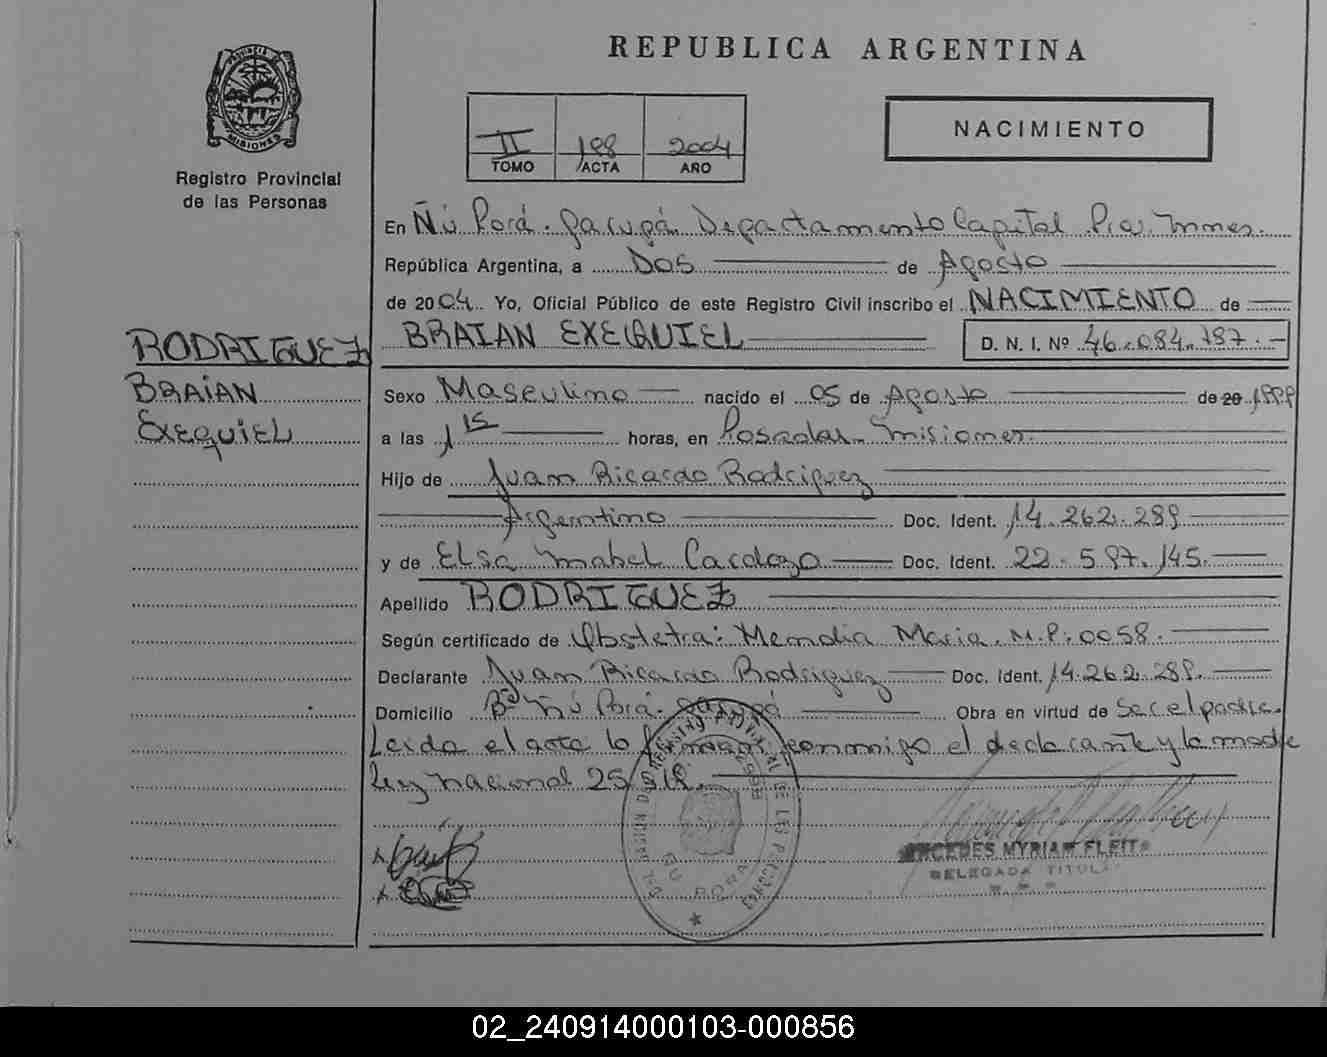 REPUBLICA ARGENTINA
PROVINCIA DE MISIONES
Registro Provincial
de las Personas
II 198 2004
TOMO ACTA AÑO
NACIMIENTO
En Ñú Porá. Garupá. Departamento Capital
República Argentina, a Dos de Agosto
de 2004 Yo, Oficial Público de este Registro Civil inscribo el NACIMIENTO de
BRAIAN EXEQUIEL D. N. I. Nº 46.084.787.-
RODRIGUEZ
BRAIAN
EXEQUIEL
Sexo Masculino nacido el 05 de Agosto de 20 1999
a las 1 15 horas, en Posadas - Misiones.
Hijo de Juan Ricardo Rodriguez
Argentino Doc. Ident. 14.262.289
y de Elsa Mabel Cardozo Doc. Ident. 22.597.145.
Apellido RODRIGUEZ
Según certificado de Obstetra: Mendia Maria. M.P: 0058.
Declarante Juan Ricardo Rodriguez Doc. Ident. 14.262.289.
Domicilio Bº Ñú Porá. Garupá Obra en virtud de Ser el padre.
Leida el acta lo firman conmigo el declarante y la madre
Ley Nacional 25
ÑU PORA
MERCEDES MYRIAM FLEITAS
DELEGADA TITULAR
02_240914000103-000856